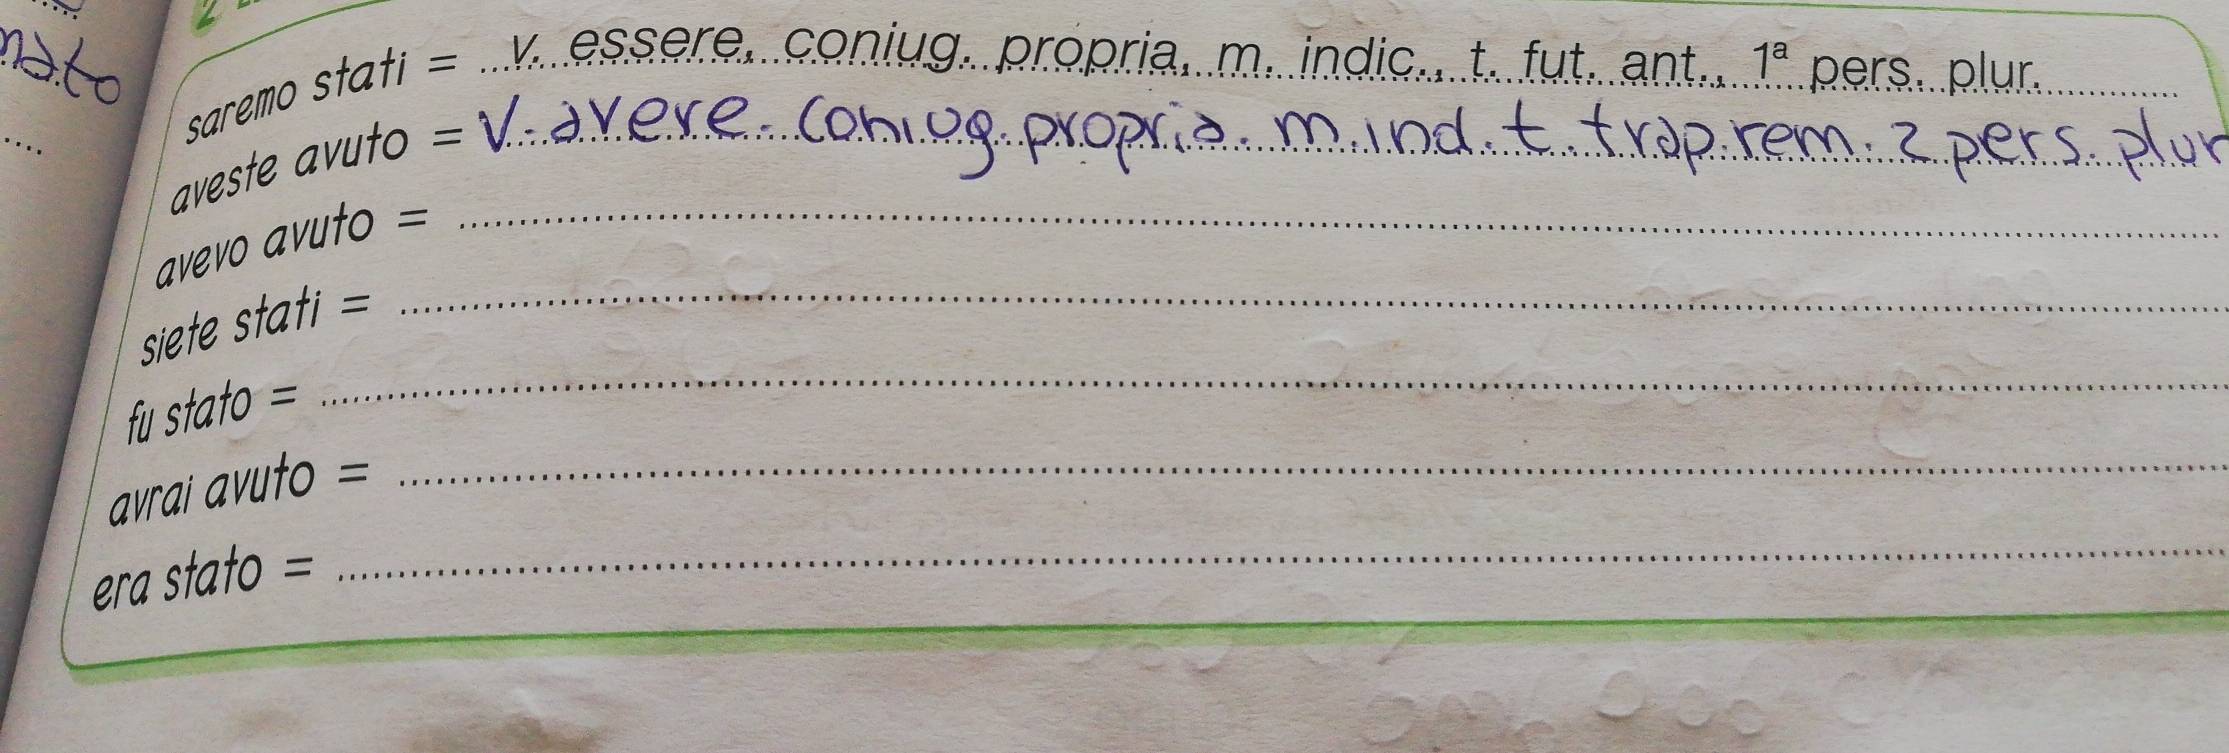 nato
saremo stati = v. essere, coniug. propria, m. indic., t. fut. ant., 1ª pers. plur.
aveste avuto = V. avere. coniug. propria. m. ind. t. trap. rem. 2 pers. plur
avevo avuto =
siete stati =
fu stato =
avrai avuto =
era stato =